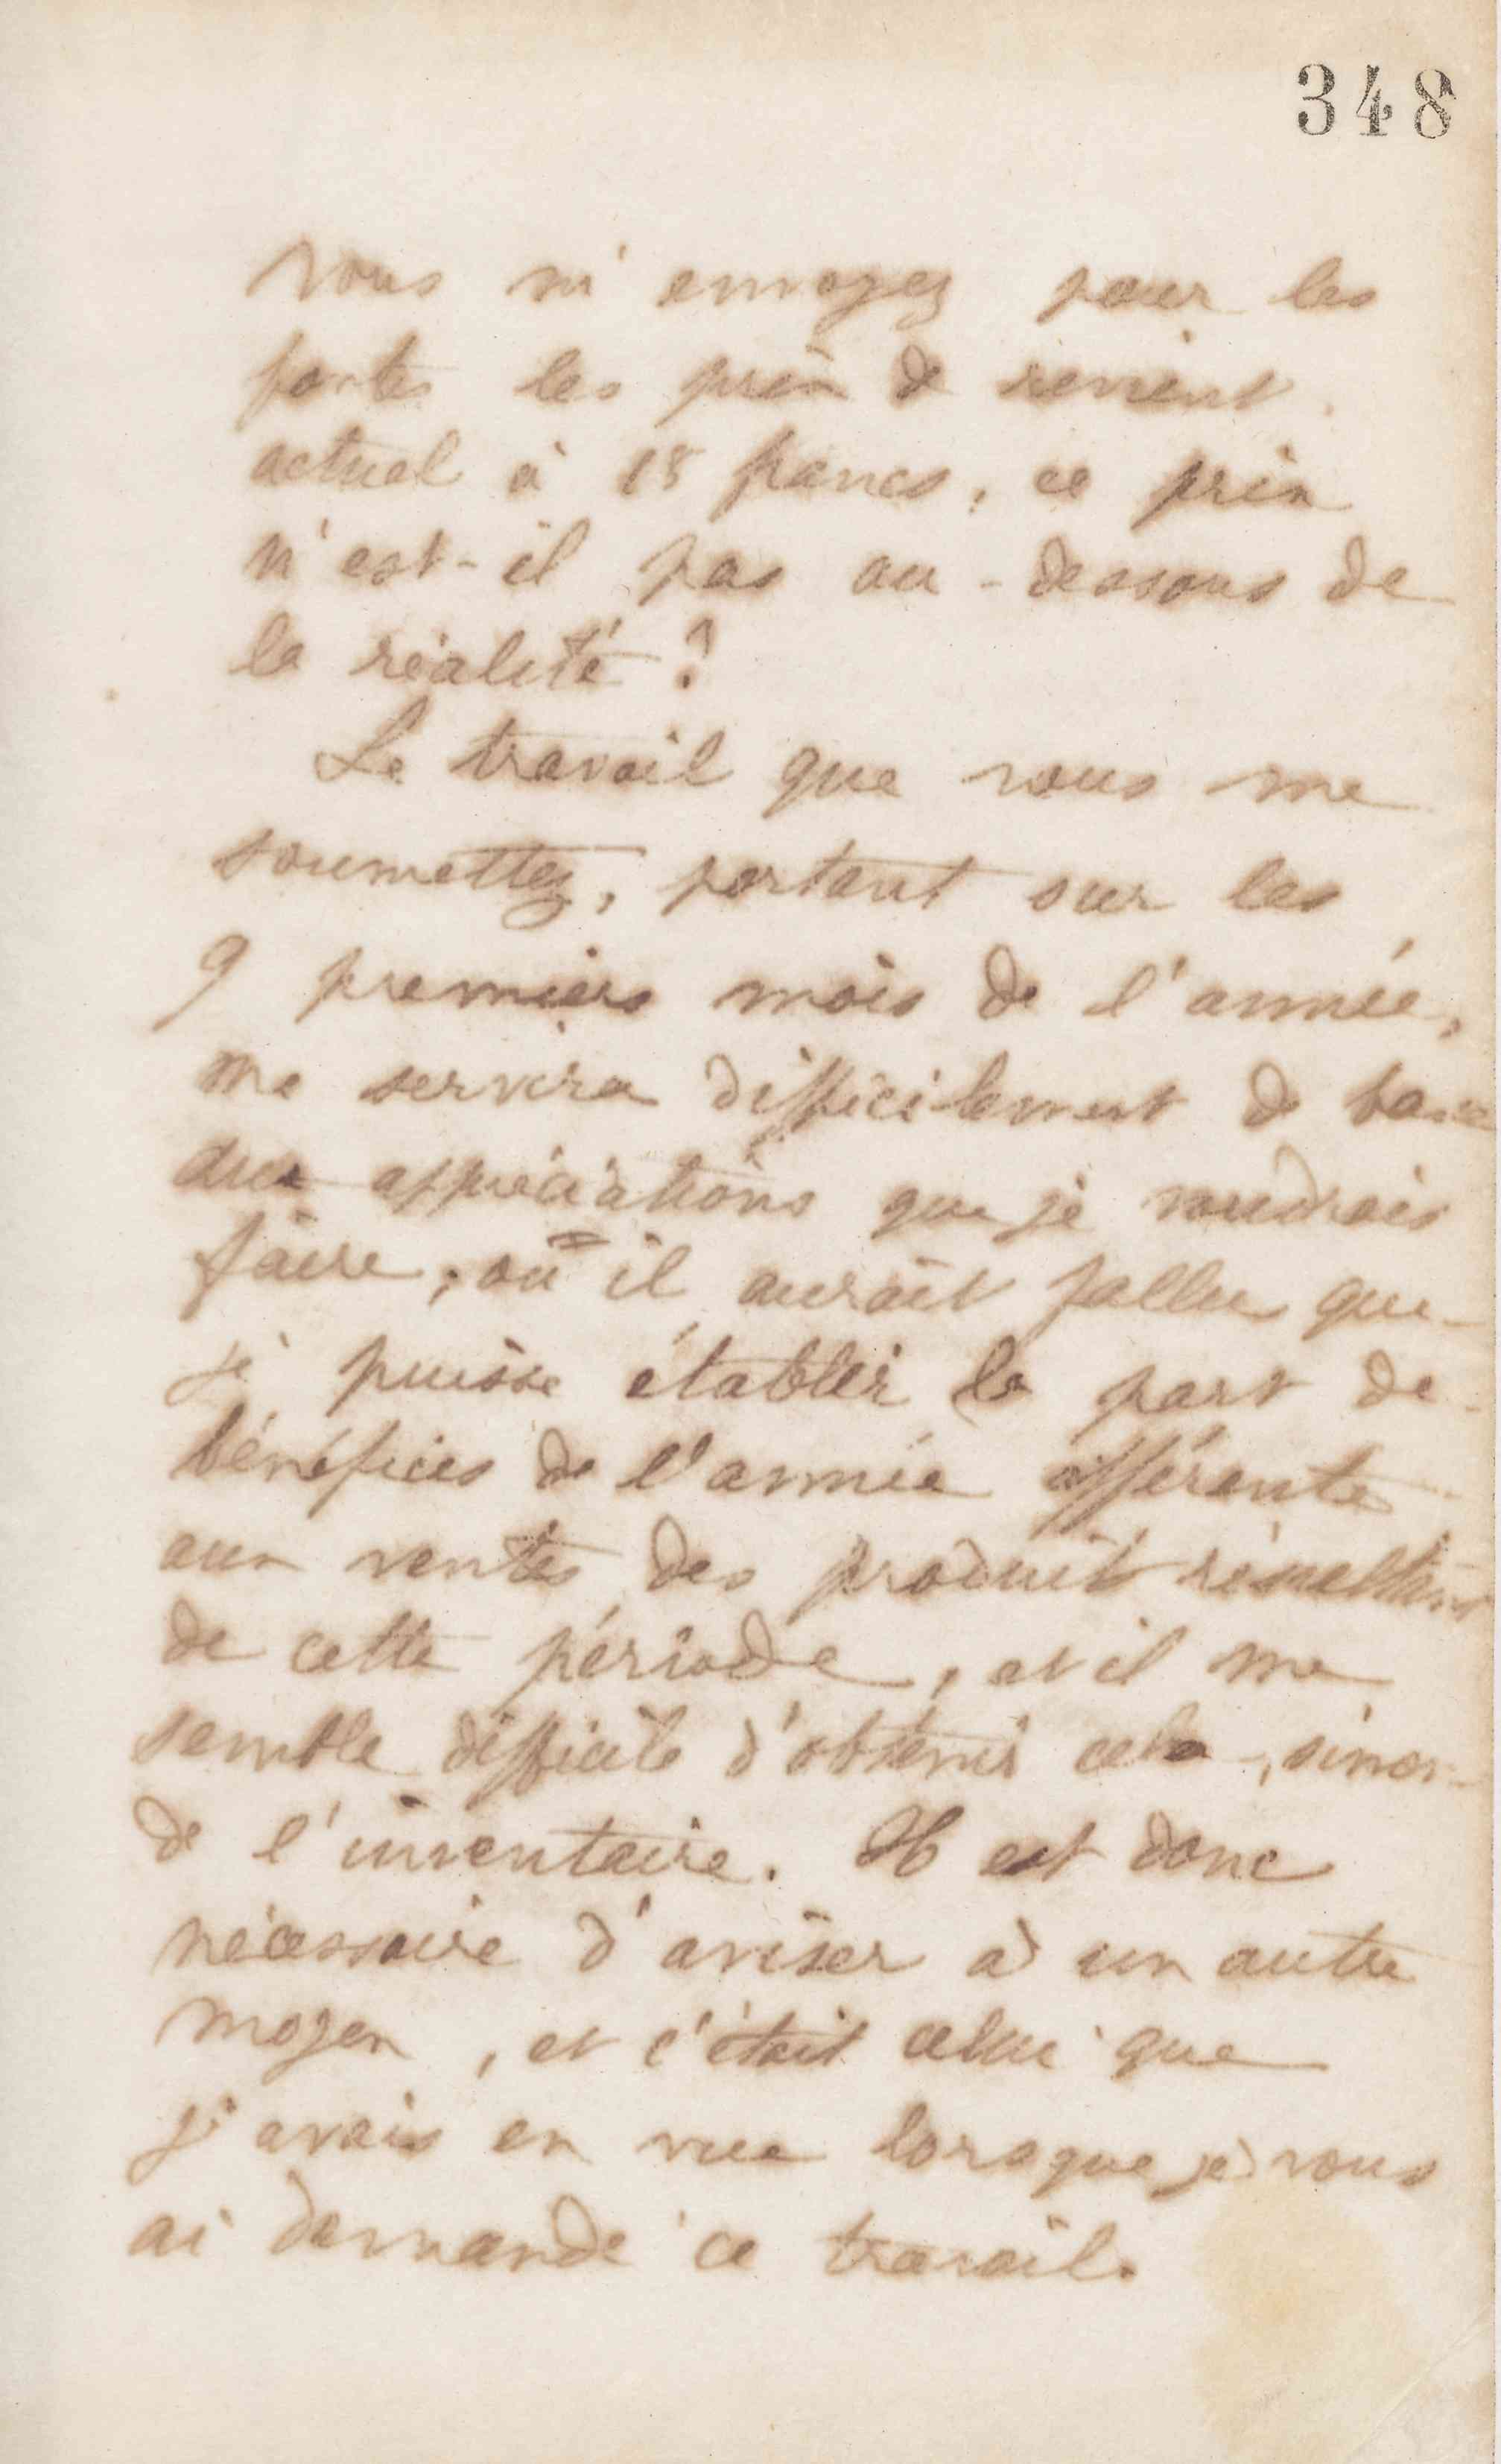 348
vous m'envoyez pour les
fontes les prix de revient
actuel à 18 francs, ce prix
n'est-il pas au-dessous de
la réalité ?
Le travail que vous me
soumettez, portant sur les
9 premiers mois de l'année,
me servira difficilement de base
aux appréciations que je voudrais
faire, où il aurait fallu que
je puisse établir la part de
bénéfices de l'année afférente
aux ventes des produits résultant
de cette période, et il me
semble difficile d'obtenir cela, sinon
de l'inventaire. Il est donc
nécessaire d'aviser à un autre
moyen, et c'était celui que
j'avais en vue lorsque je vous
ai demandé ce travail.